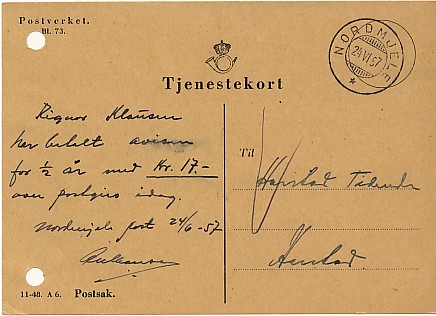 Postverket.
Bl. 73.
NORDMJELE
24 VI 57
Tjenestekort
Rignor Klausen
har betalt avisen
for ½ år med Kr. 17.-
over postgiro idag.
Nordmjele post 24/6-57
Til
Harstad Tidende
Harstad.
11-48. A 6. Postsak.